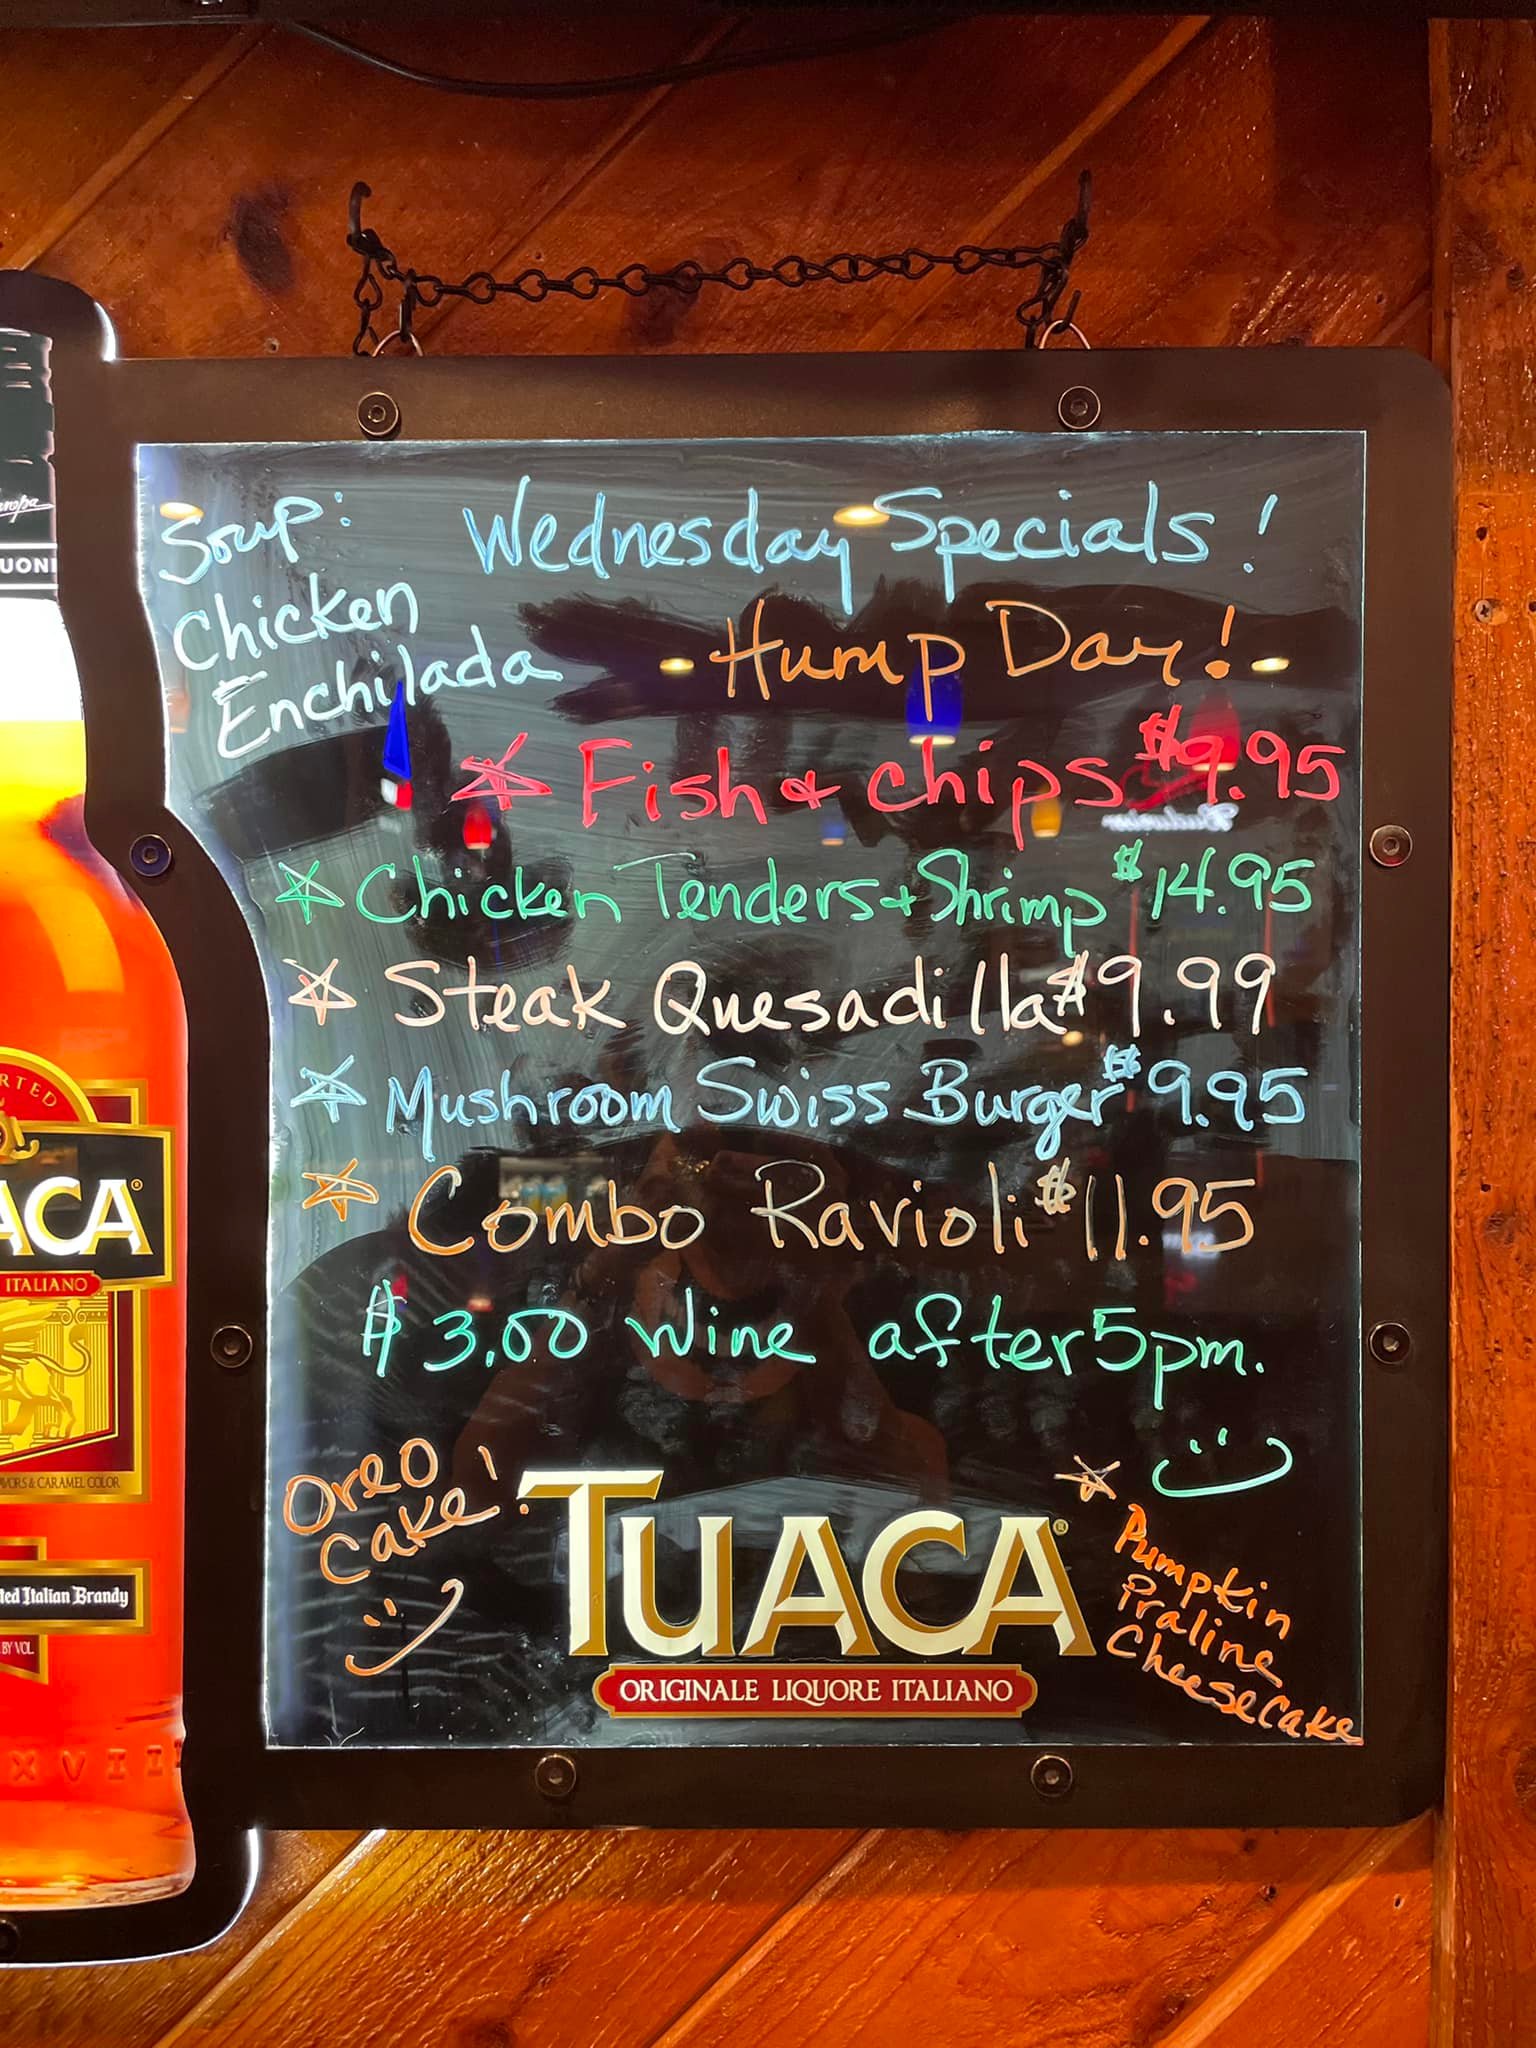 Soup:
Chicken
Enchilada
Wednesday Specials!
Hump Day!
Fish & Chips $9.95
Chicken Tenders + Shrimp $14.95
Steak Quesadilla $9.99
Mushroom Swiss Burger $9.95
Combo Ravioli $11.95
$3.00 Wine after 5pm.
Oreo
Cake!
Pumpkin
Praline
Cheesecake
TUACA®
ORIGINALE LIQUORE ITALIANO
ACA®
ITALIANO
VORS & CARAMEL COLOR
ted Italian Brandy
BY VOL.
XVIII